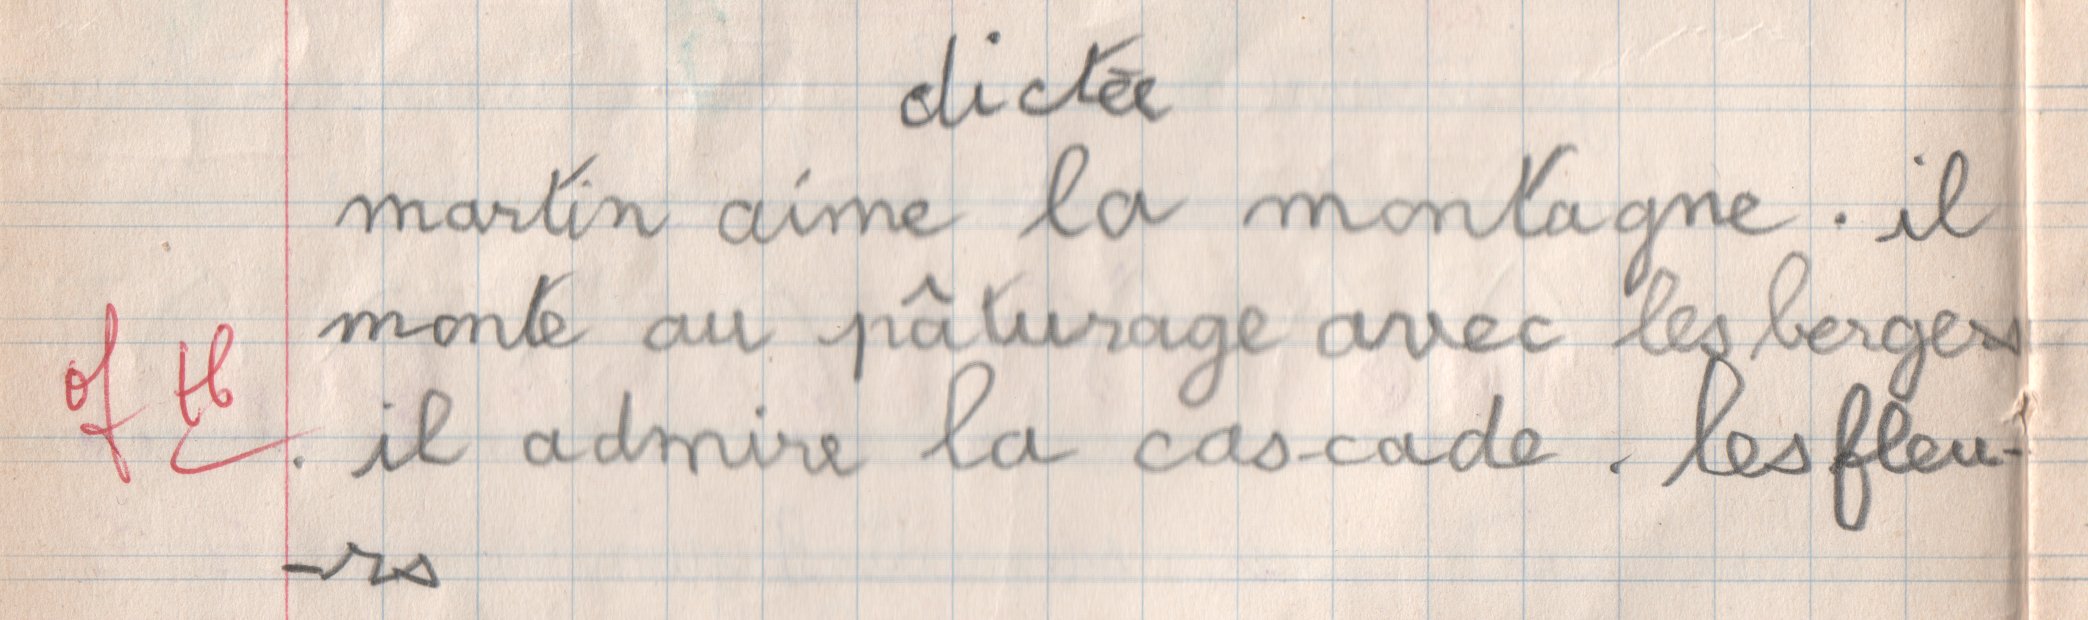 dictée
martin aime la montagne. il
monte au pâturage avec les bergers
of tb
. il admire la cascade. les fleu-
-rs